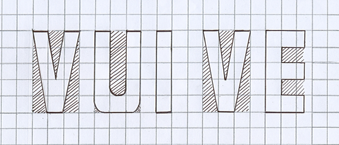 VUI VE